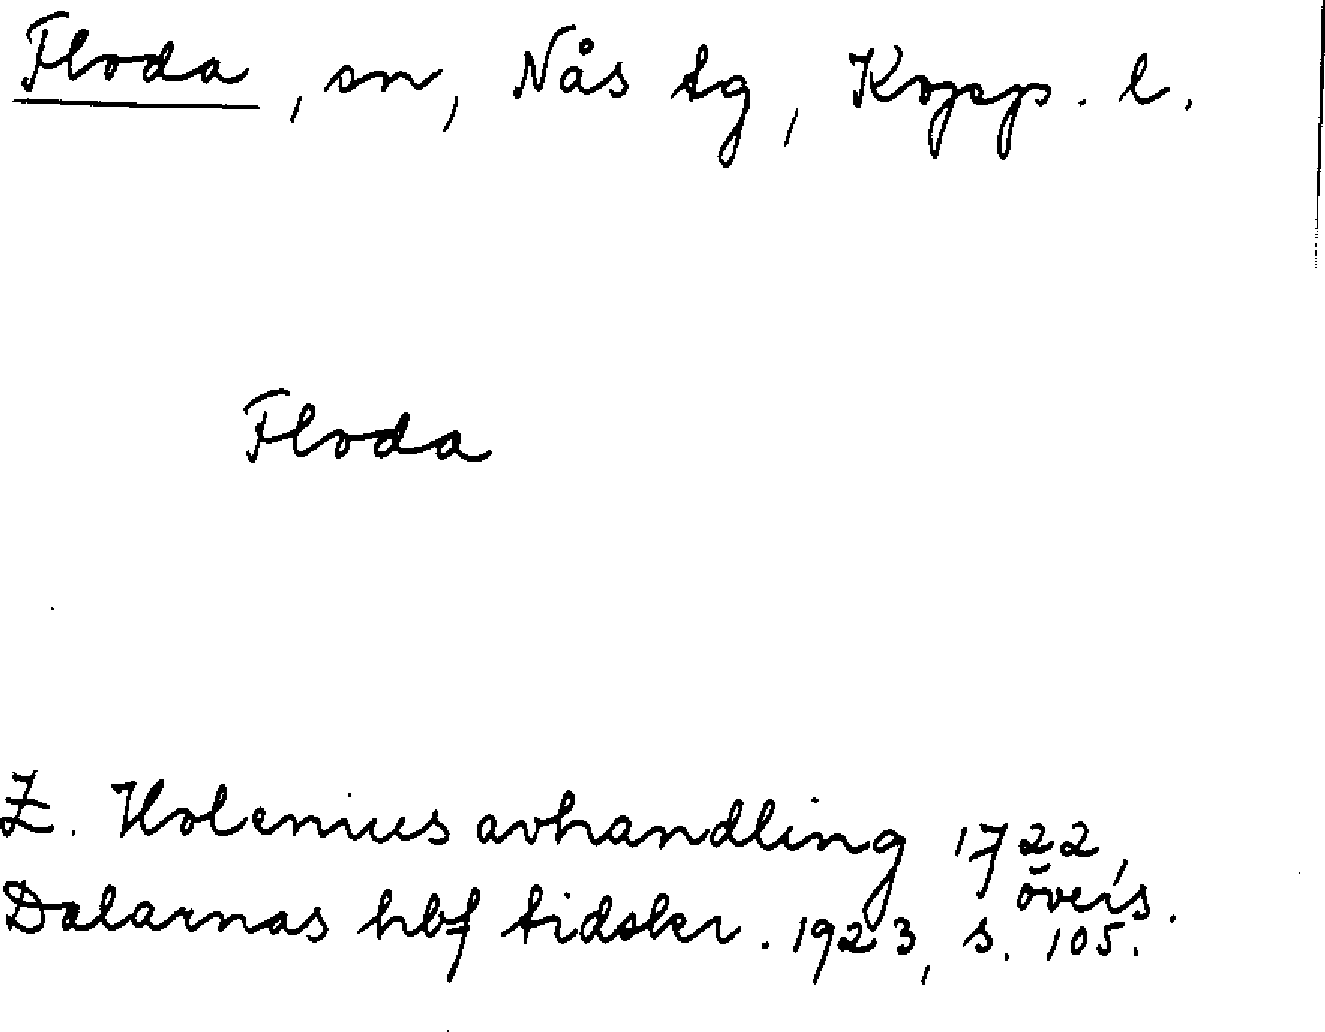 Floda, sn, Nås tg, Kopp. l.
Floda
Z. Holenius avhandling 1722,
övers.
Dalarnas hbf tidskr. 1923, s. 105.